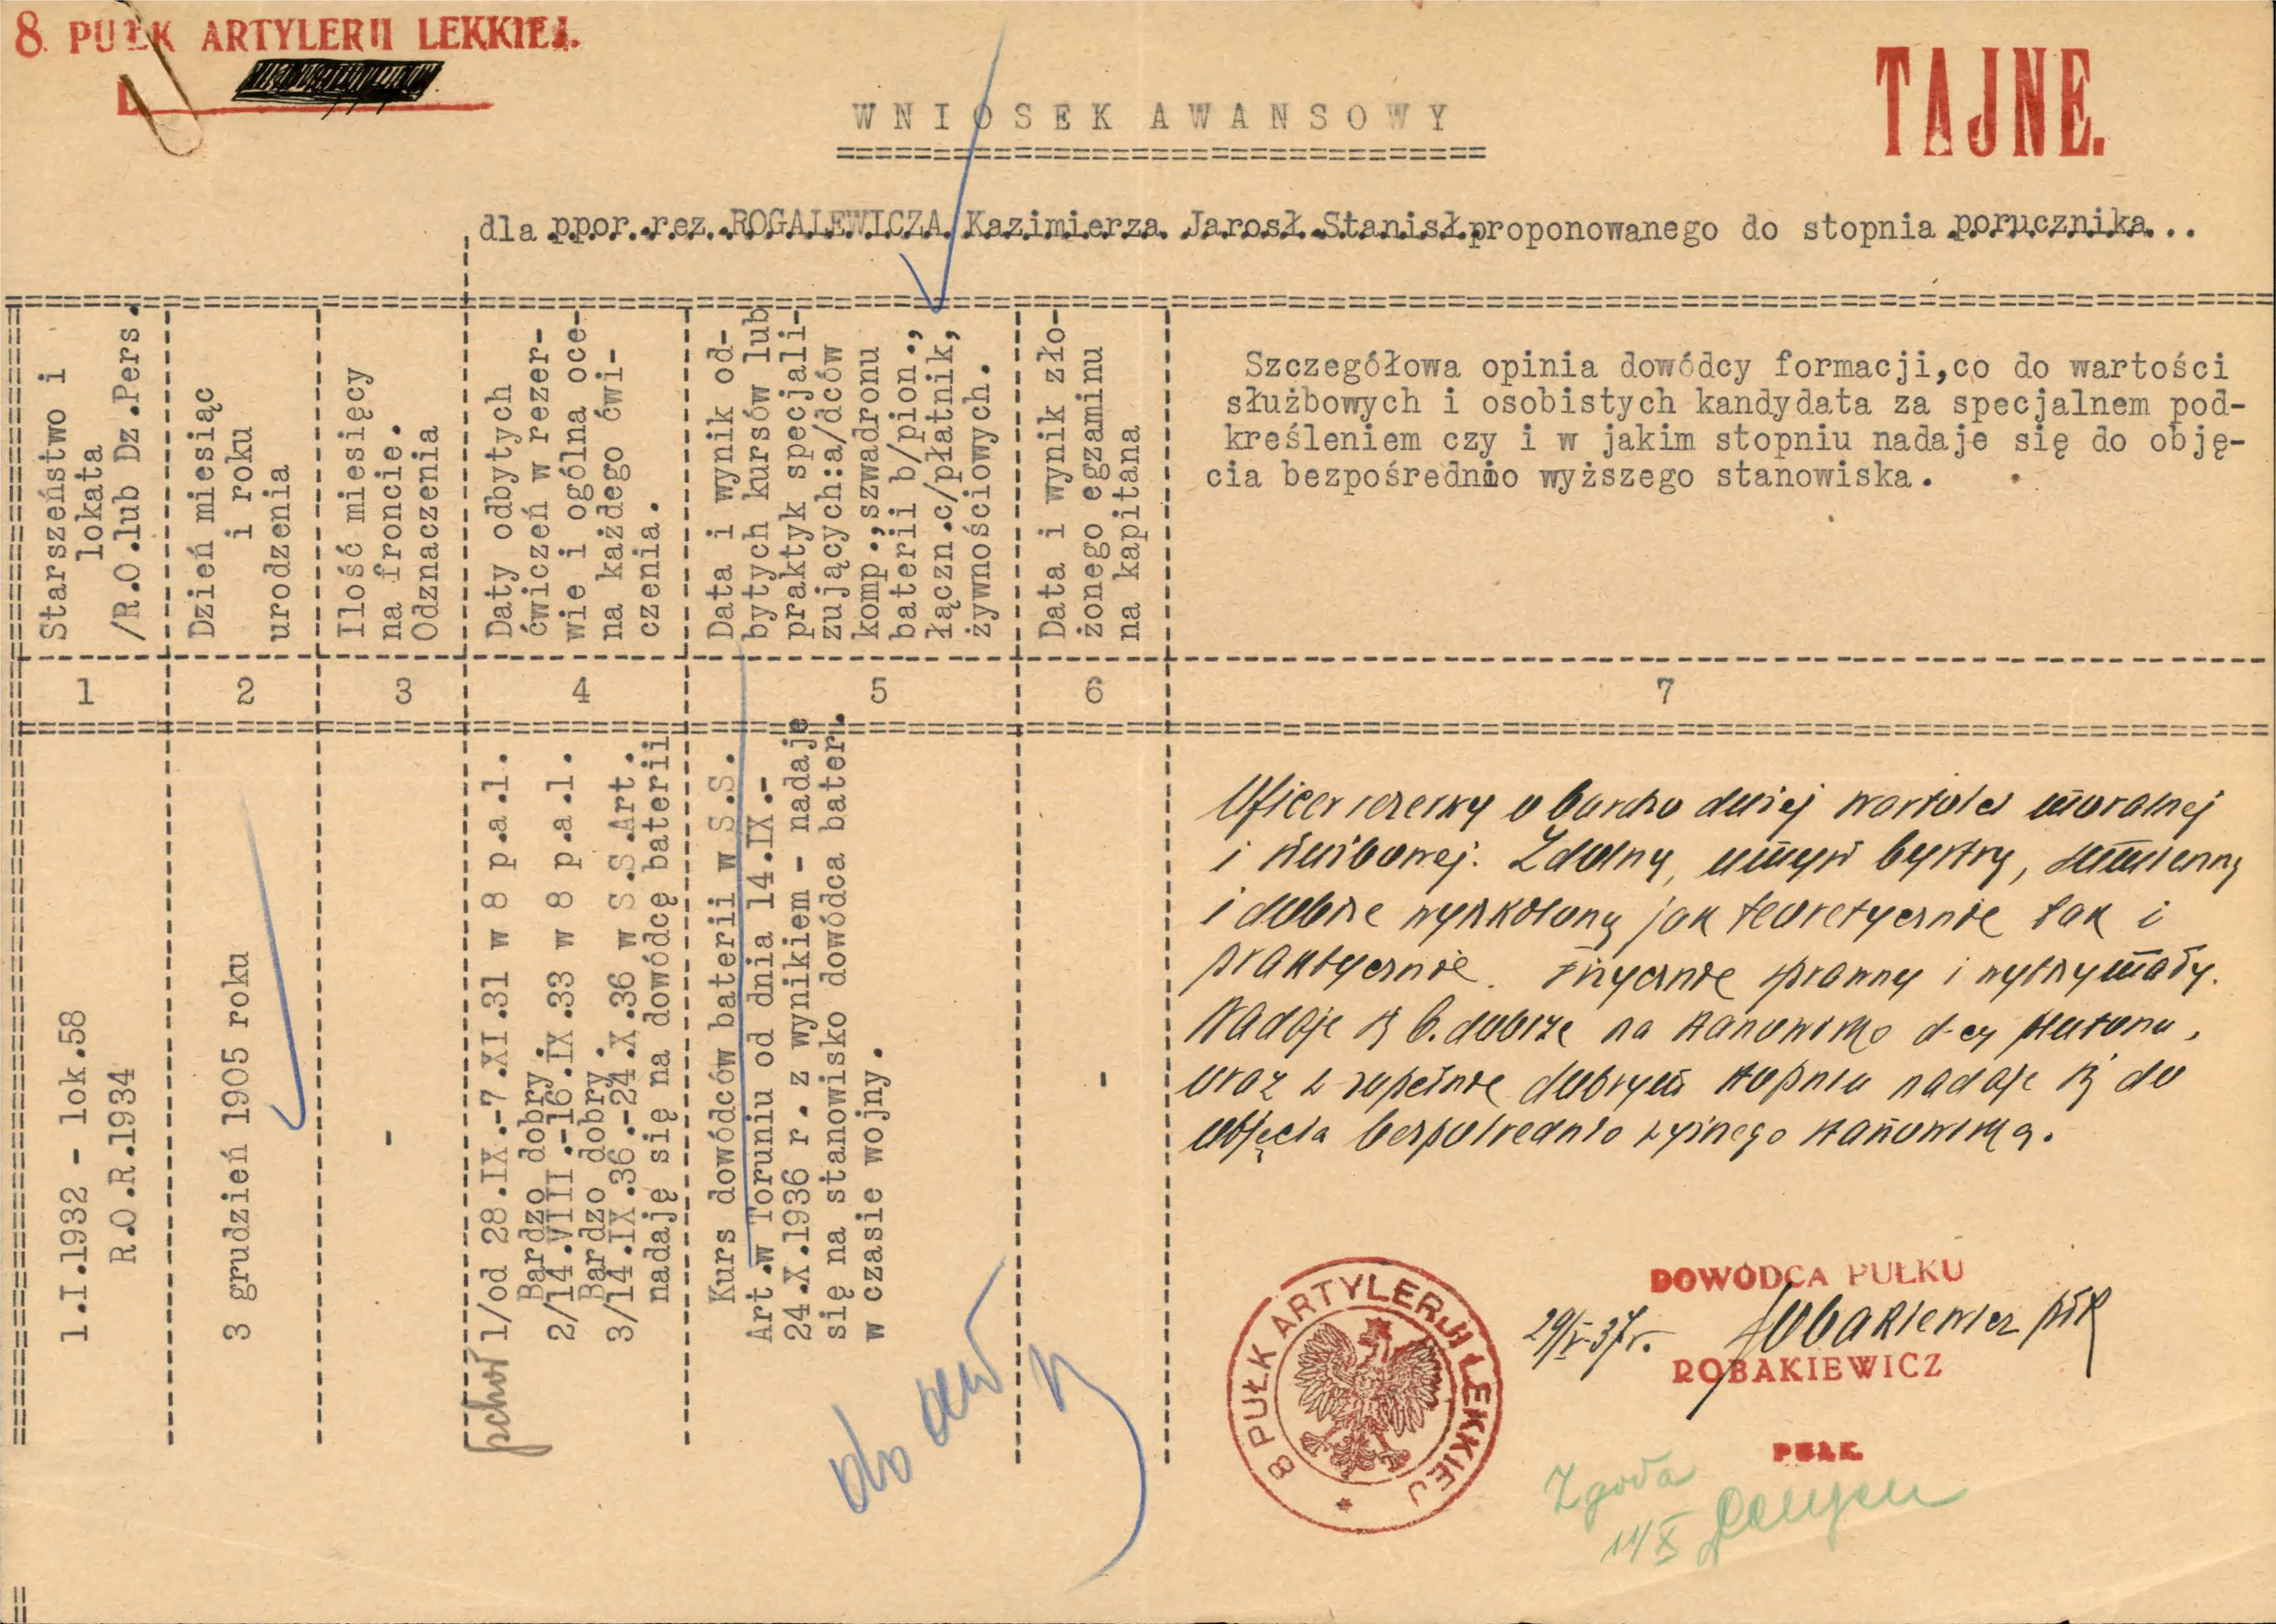 8. PUŁK ARTYLERII LEKKIEJ.
TAJNE.
WNIOSEK AWANSOWY
dla ppor. rez. ROGALEWICZA Kazimierza Jarosł. Stanisł. proponowanego do stopnia porucznika...
Starszeństwo i
lokata
/R.O.lub Dz.Pers.
Dzień miesiąc
i roku
urodzenia
Ilość miesięcy
na froncie.
Odznaczenia
Daty odbytych
ćwiczeń w rezer-
wie i ogólna oce-
na każdego ćwi-
czenia.
Data i wynik od-
bytych kursów lub
praktyk specjali-
zujących:a/dców
komp.,szwadronu
baterii b/pion.,
łączn.c/płatnik,
żywnościowych.
Data i wynik zło-
żonego egzaminu
na kapitana
Szczegółowa opinia dowódcy formacji,co do wartości
służbowych i osobistych kandydata za specjalnem pod-
kreśleniem czy i w jakim stopniu nadaje się do obję-
cia bezpośrednio wyższego stanowiska.
1 2 3 4 5 6 7
1.I.1932 - lok.58
R.O.R.1934
3 grudzień 1905 roku
-
1/od 28.IX.-7.XI.31 w 8 p.a.l.
Bardzo dobry.
2/14.VIII.-16.IX.33 w 8 p.a.l.
Bardzo dobry.
3/14.IX.36.-24.X.36 w S.S.Art.
nadaję się na dowódcę baterii
Kurs dowódców baterii w S.S.
Art.w Toruniu od dnia 14.IX.-
24.X.1936 r. z wynikiem - nadaje
się na stanowisko dowódca bater.
w czasie wojny.
-
Oficer rezerwy o bardzo dużej wartości moralnej
i służbowej. Zdolny, umysł bystry, sumienny
i dobrze wyszkolony jak teoretycznie tak i
praktycznie. Fizycznie sprawny i wytrzymały.
Nadaje się b. dobrze na stanowisko d-cy plutonu,
oraz w zupełnie dobrym stopniu nadaje się do
objęcia bezpośrednio wyższego stanowiska.
8 PUŁK ARTYLERJI LEKKIEJ
DOWÓDCA PUŁKU
29/V.37r. Robakiewicz płk
ROBAKIEWICZ
PUŁK.
do aw
Zgoda
11/X